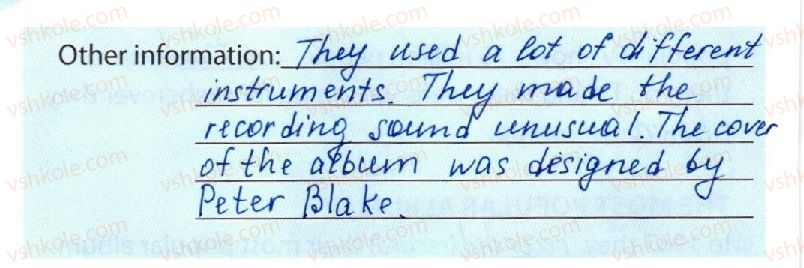 Other information: They used a lot of different
instruments. They made the
recording sound unusual. The cover
of the album was designed by
Peter Blake.